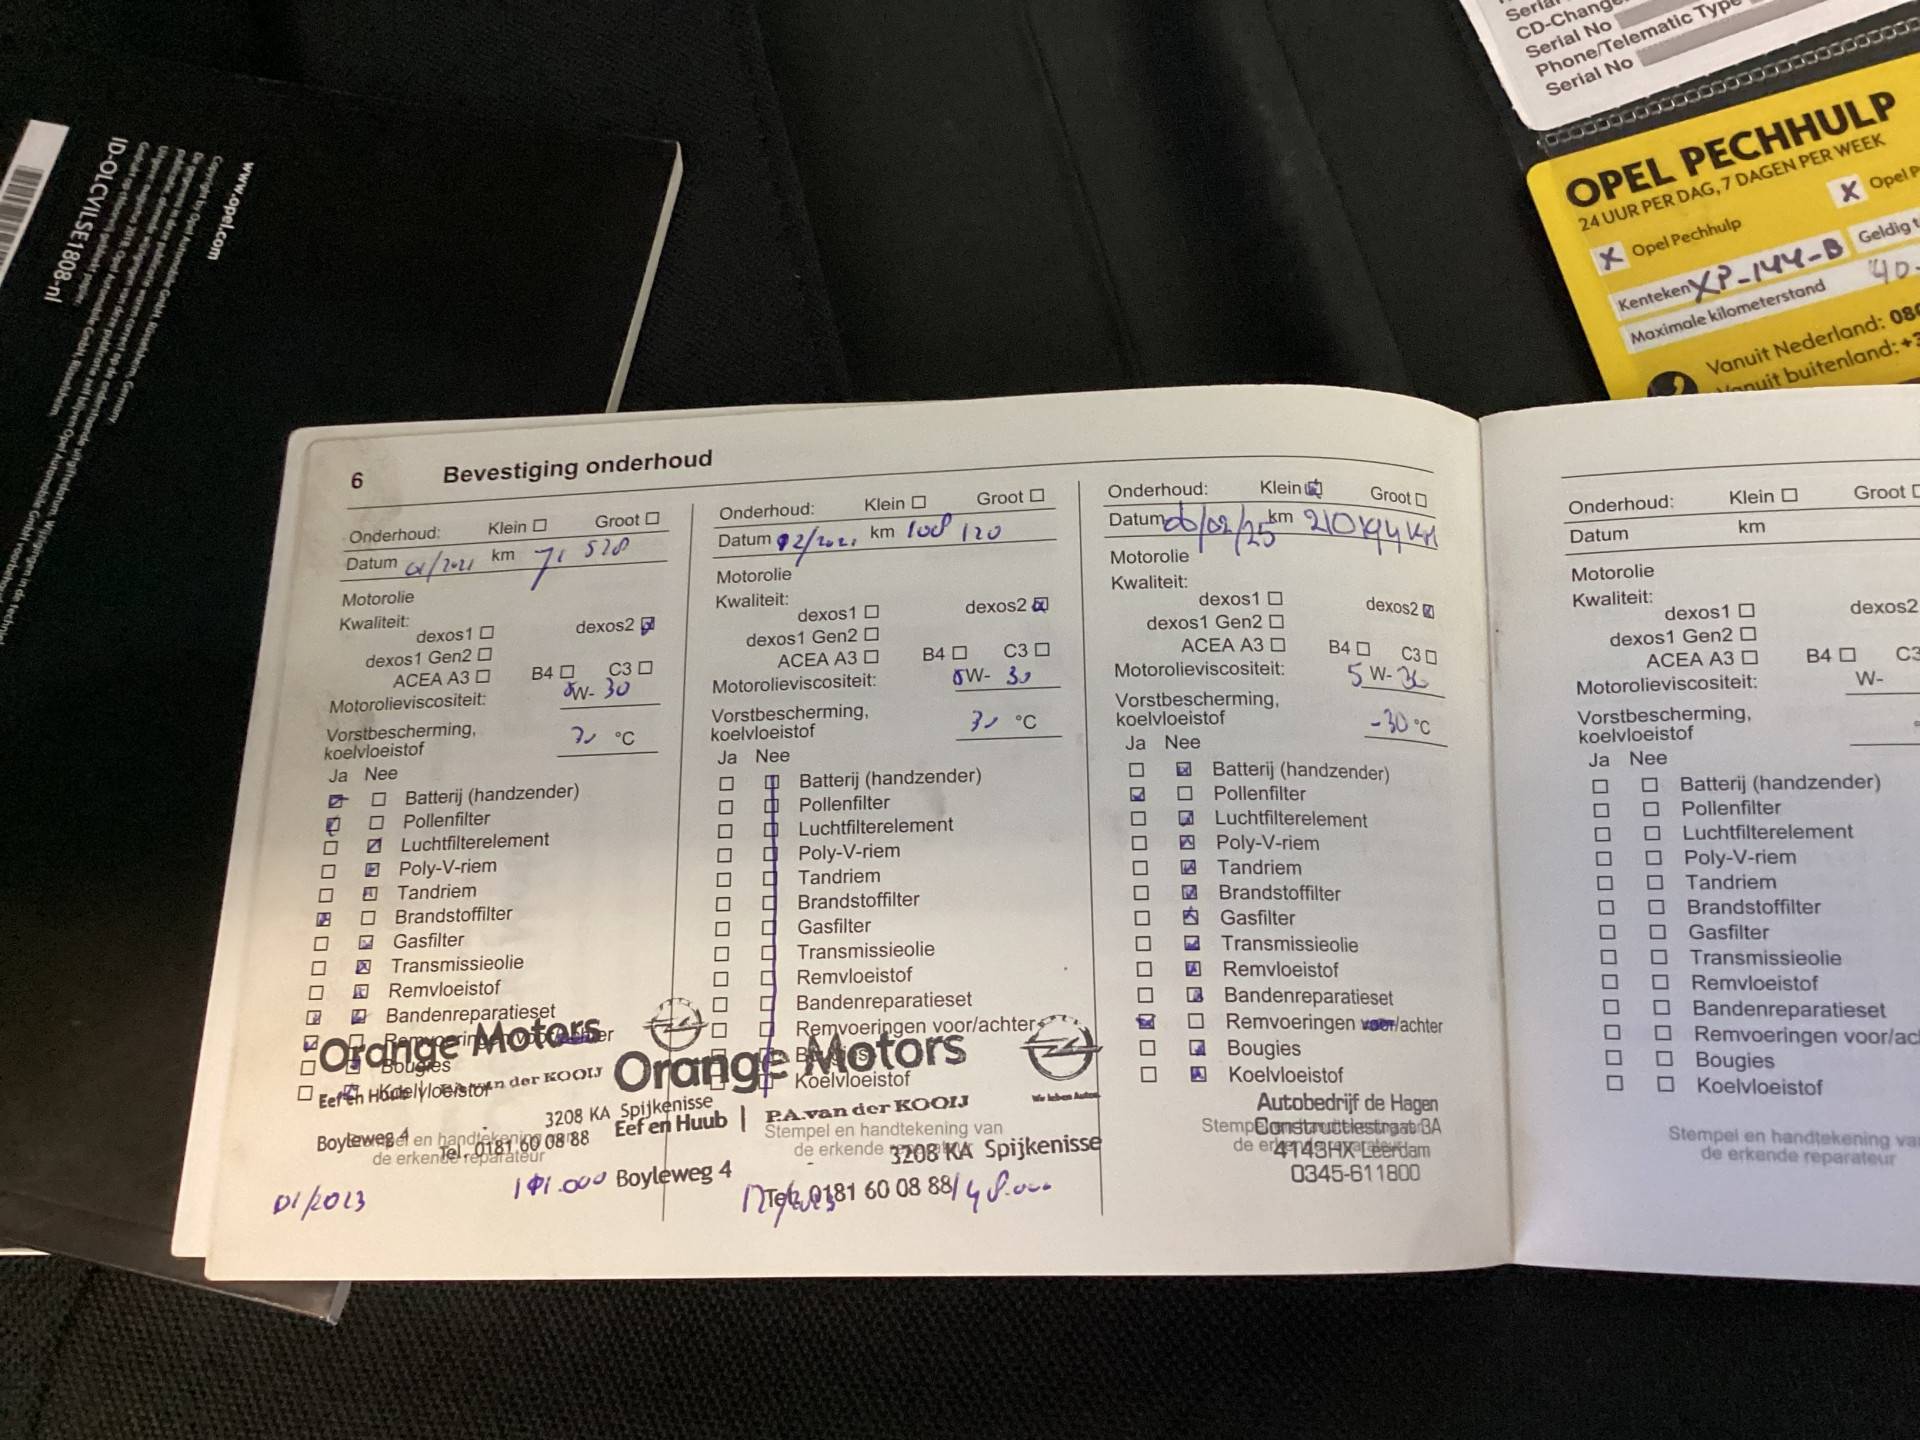 www.opel.com
Copyright by Opel Automobile GmbH, Rüsselsheim, Germany
ID-OLCVILSE1808-nl
CD-Change
Serial No
Phone/Telematic Type
Serial No
OPEL PECHHULP
24 UUR PER DAG, 7 DAGEN PER WEEK
X Opel Pechhulp
X Opel P
Kenteken XP-144-B Geldig t
Maximale kilometerstand 40-
Vanuit Nederland: 080
Vanuit buitenland: +3
6 Bevestiging onderhoud
Onderhoud: Klein Groot
Datum 01/2021 km 71 578
Motorolie
Kwaliteit:
dexos1 dexos2
dexos1 Gen2
ACEA A3 B4 C3
Motorolieviscositeit: 5W- 30
Vorstbescherming,
koelvloeistof °C
Ja Nee
Batterij (handzender)
Pollenfilter
Luchtfilterelement
Poly-V-riem
Tandriem
Brandstoffilter
Gasfilter
Transmissieolie
Remvloeistof
Bandenreparatieset
Remvoeringen voor/achter
Bougies
Koelvloeistof
Orange Motors
Eef en Huub | P.A.van der KOOIJ
3208 KA Spijkenisse
Boyleweg 4
Tel. 0181 60 08 88
Stempel en handtekening van
de erkende reparateur
01/2023
Onderhoud: Klein Groot
Datum 12/2021 km 108 120
Motorolie
Kwaliteit:
dexos1 dexos2
dexos1 Gen2
ACEA A3 B4 C3
Motorolieviscositeit: 5W- 30
Vorstbescherming,
koelvloeistof °C
Ja Nee
Batterij (handzender)
Pollenfilter
Luchtfilterelement
Poly-V-riem
Tandriem
Brandstoffilter
Gasfilter
Transmissieolie
Remvloeistof
Bandenreparatieset
Remvoeringen voor/achter
Bougies
Koelvloeistof
Orange Motors
Wir leben Autos.
Eef en Huub | P.A.van der KOOIJ
Stempel en handtekening van
de erkende reparateur
3208 KA Spijkenisse
Boyleweg 4
Tel. 0181 60 08 88
148.000
Onderhoud: Klein Groot
Datum 06/02/25 km 210194 KM
Motorolie
Kwaliteit:
dexos1 dexos2
dexos1 Gen2
ACEA A3 B4 C3
Motorolieviscositeit: 5 W- 30
Vorstbescherming,
koelvloeistof -30 °C
Ja Nee
Batterij (handzender)
Pollenfilter
Luchtfilterelement
Poly-V-riem
Tandriem
Brandstoffilter
Gasfilter
Transmissieolie
Remvloeistof
Bandenreparatieset
Remvoeringen voor/achter
Bougies
Koelvloeistof
Autobedrijf de Hagen
Constructiestraat 3A
4143HX Leerdam
0345-611800
Onderhoud: Klein Groot
Datum km
Motorolie
Kwaliteit:
dexos1 dexos2
dexos1 Gen2
ACEA A3 B4 C3
Motorolieviscositeit: W-
Vorstbescherming,
koelvloeistof
Ja Nee
Batterij (handzender)
Pollenfilter
Luchtfilterelement
Poly-V-riem
Tandriem
Brandstoffilter
Gasfilter
Transmissieolie
Remvloeistof
Bandenreparatieset
Remvoeringen voor/ac
Bougies
Koelvloeistof
Stempel en handtekening va
de erkende reparateur